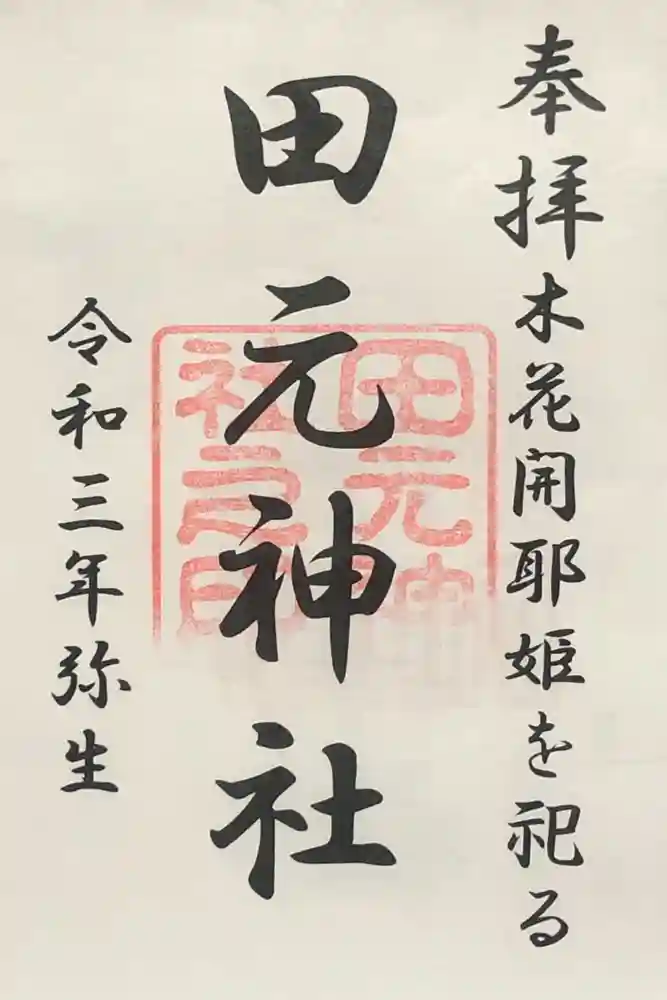 奉拝木花開耶姫を祀る
田元神社
田元神
社之印
令和三年弥生